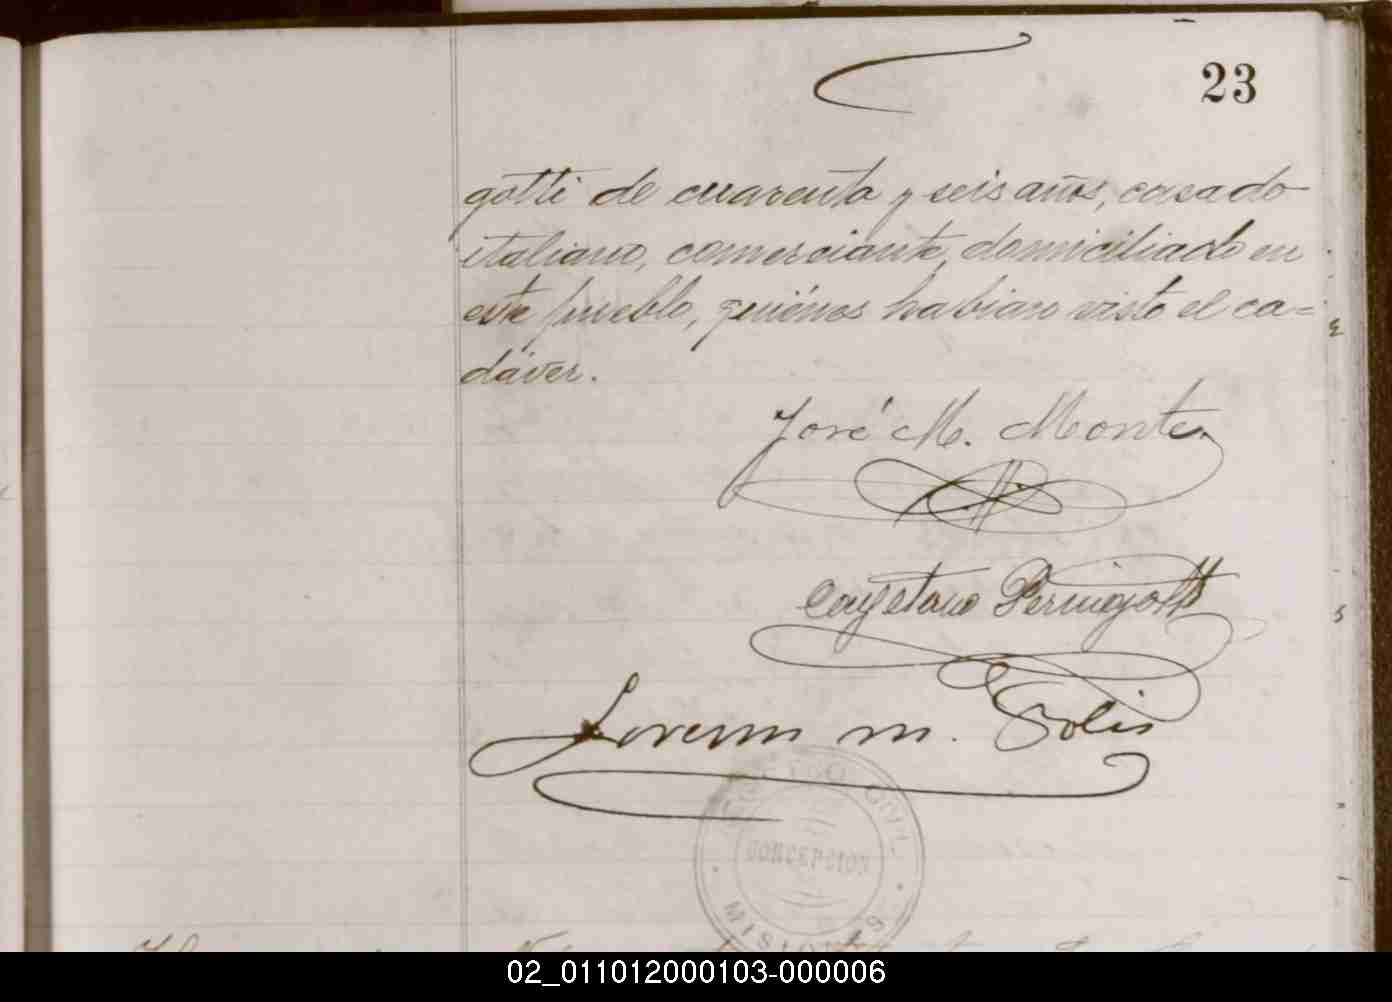 23
gotti de cuarenta y seis años, casado
italiano, comerciante, domiciliado en
este pueblo, quiénes habian visto el ca=
dáver.
José M. Monte
Cayetano Perugotti
M. Solis
REGISTRO CIVIL
CONCEPCION
MISIONES
02_011012000103-000006